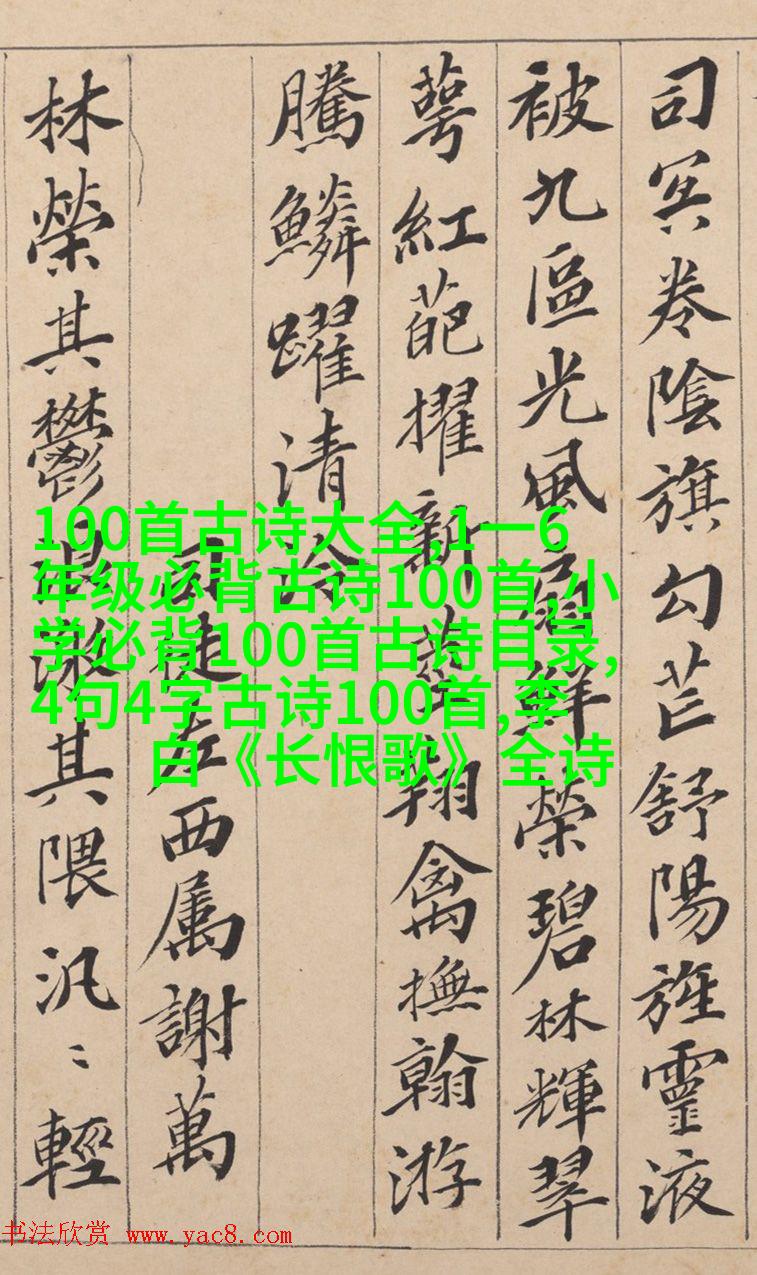 司冥卷陰旗勾芒舒陽旌靈液
被九區光風扇鮮榮碧林輝翠
萼紅葩擢新莖翔禽撫翰游
騰鱗躍清泠
司徒左西属謝萬
林榮其鬱浪激其隈汎〻輕
100首古诗大全,1一6
年级必背古诗100首,小
学必背100首古诗目录,
4句4字古诗100首,李
白《长恨歌》全诗
书法欣赏 www.yac8.com